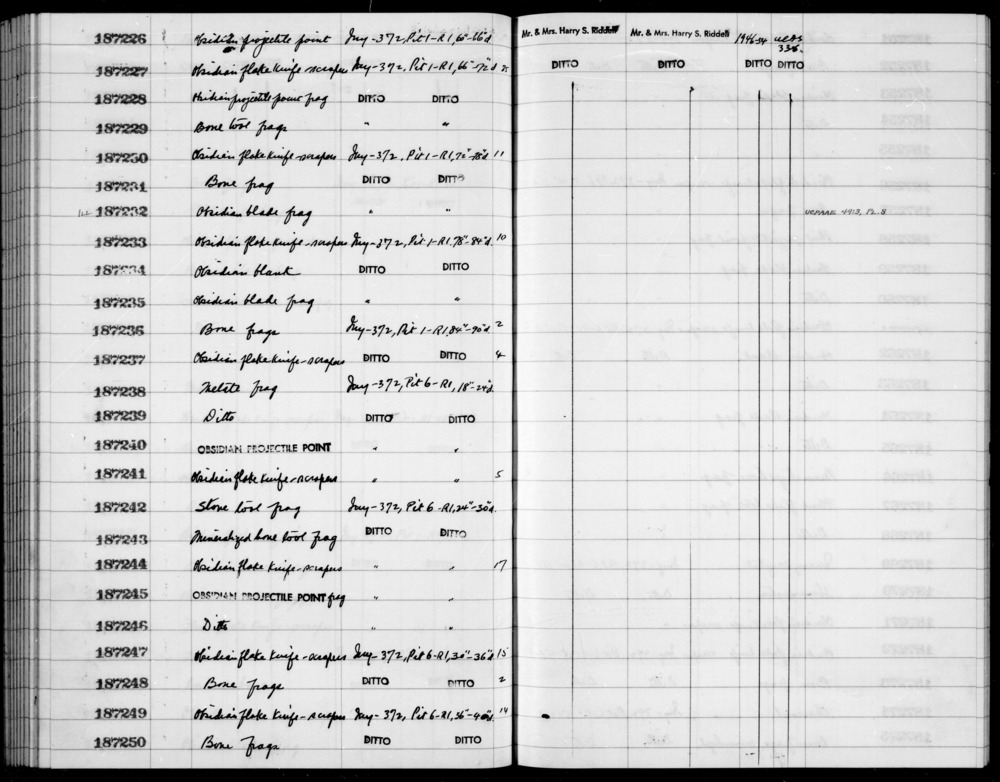 187226 Obsidian projectile point Iny-372, Pit 1-R1, 60"-66"d Mr. & Mrs. Harry S. Riddell Mr. & Mrs. Harry S. Riddell 1946-34 UCAS 336.
187227 Obsidian flake knife-scrapers Iny-372, Pit 1-R1, 66"-72"d DITTO DITTO DITTO DITTO
187228 Obsidian projectile point frag DITTO DITTO
187229 Bone tool frags " "
187230 Obsidian flake knife-scrapers Iny-372, Pit 1-R1, 72"-78"d 11
187231 Bone frag DITTO DITTO
187232 Obsidian blade frag " " UCPAAE 49:3, PL. 8
187233 Obsidian flake knife-scrapers Iny-372, Pit 1-R1, 78"-84"d 10
187234 Obsidian blank DITTO DITTO
187235 Obsidian blade frag " "
187236 Bone frags Iny-372, Pit 1-R1, 84"-90"d 2
187237 Obsidian flake knife-scrapers DITTO DITTO 4
187238 Metate frag Iny-372, Pit 6-R1, 18"-24"d.
187239 Ditto DITTO DITTO
187240 OBSIDIAN PROJECTILE POINT " "
187241 Obsidian flake knife-scrapers " " 5
187242 Stone tool frag Iny-372, Pit 6-R1, 24"-30"d.
187243 Mineralized bone tool frag DITTO DITTO
187244 Obsidian flake knife-scrapers " " 17
187245 OBSIDIAN PROJECTILE POINT frag " "
187246 Ditto " "
187247 Obsidian flake knife-scrapers Iny-372, Pit 6-R1, 30"-36"d 15
187248 Bone frags DITTO DITTO 2
187249 Obsidian flake knife-scrapers Iny-372, Pit 6-R1, 36"-40"d 14
187250 Bone frags DITTO DITTO